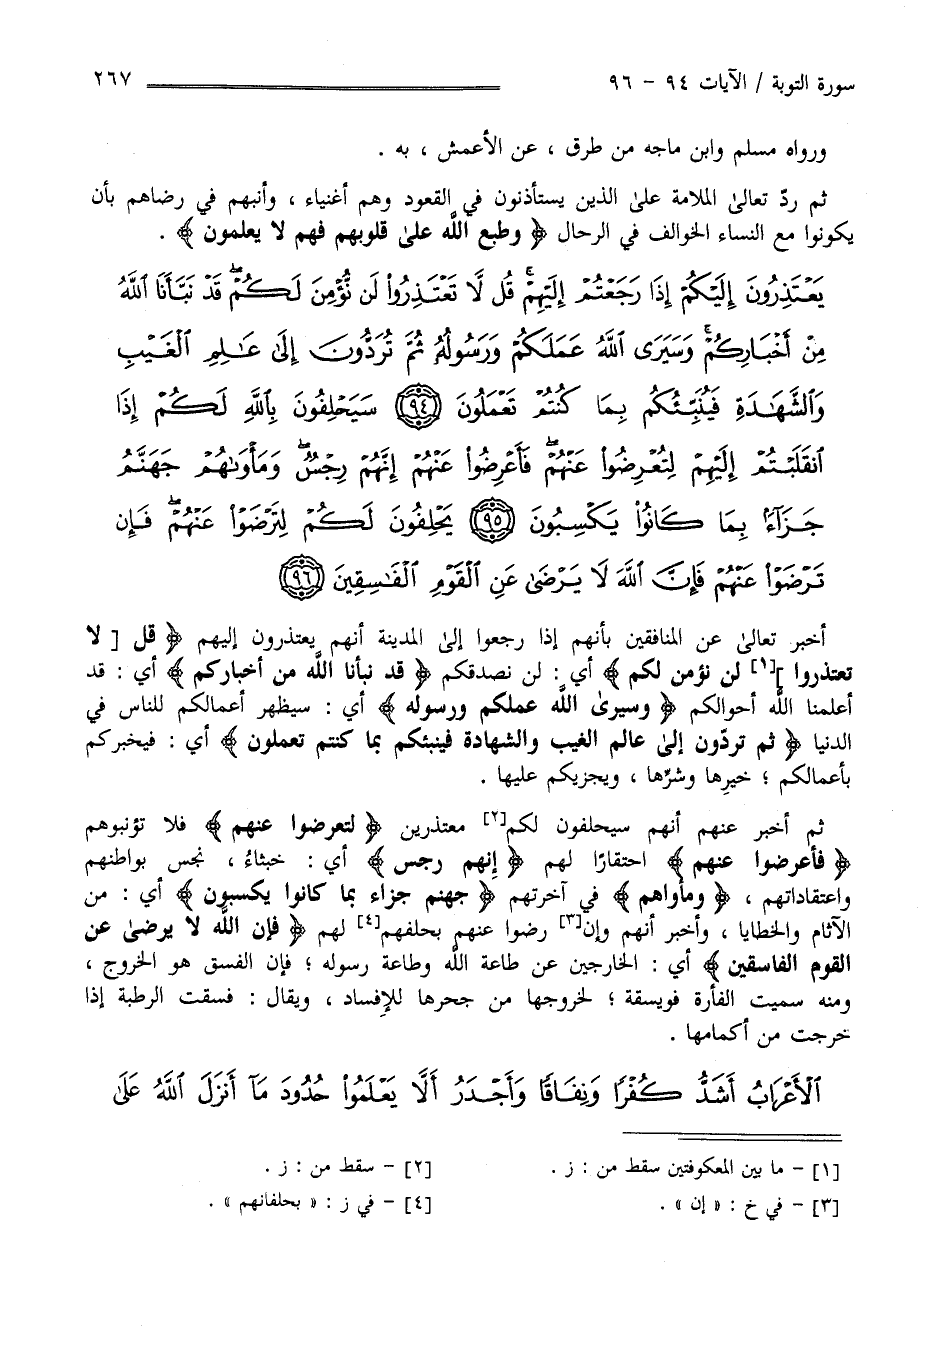 سورة التوبة / الآيات ٩٤ - ٩٦ ٢٦٧
ورواه مسلم وابن ماجه من طرق ، عن الأعمش ، به .
ثم ردّ تعالىٰ الملامة علىٰ الذين يستأذنون في القعود وهم أغنياء ، وأنبهم في رضاهم بأن
يكونوا مع النساء الخوالف في الرحال ﴿ وطبع اللَّه علىٰ قلوبهم فهم لا يعلمون ﴾ .
يَعْتَذِرُونَ إِلَيْكُمْ إِذَا رَجَعْتُمْ إِلَيْهِمْ ۚ قُل لَّا تَعْتَذِرُوا۟ لَن نُّؤْمِنَ لَكُمْ ۖ قَدْ نَبَّأَنَا ٱللَّهُ
مِنْ أَخْبَارِكُمْ ۚ وَسَيَرَى ٱللَّهُ عَمَلَكُمْ وَرَسُولُهُ ثُمَّ تُرَدُّونَ إِلَىٰ عَـٰلِمِ ٱلْغَيْبِ
وَٱلشَّهَـٰدَةِ فَيُنَبِّئُكُم بِمَا كُنتُمْ تَعْمَلُونَ ٩٤ سَيَحْلِفُونَ بِٱللَّهِ لَكُمْ إِذَا
ٱنقَلَبْتُمْ إِلَيْهِمْ لِتُعْرِضُوا۟ عَنْهُمْ ۖ فَأَعْرِضُوا۟ عَنْهُمْ إِنَّهُمْ رِجْسٌ ۖ وَمَأْوَىٰهُمْ جَهَنَّمُ
جَزَآءًۢ بِمَا كَانُوا۟ يَكْسِبُونَ ٩٥ يَحْلِفُونَ لَكُمْ لِتَرْضَوْا۟ عَنْهُمْ ۖ فَإِن
تَرْضَوْا۟ عَنْهُمْ فَإِنَّ ٱللَّهَ لَا يَرْضَىٰ عَنِ ٱلْقَوْمِ ٱلْفَـٰسِقِينَ ٩٦
أخبر تعالىٰ عن المنافقين بأنهم إذا رجعوا إلىٰ المدينة أنهم يعتذرون إليهم ﴿ قل [ لا
تعتذروا ][١] لن نؤمن لكم ﴾ أي : لن نصدقكم ﴿ قد نبأنا اللَّه من أخباركم ﴾ أي : قد
أعلمنا اللَّه أحوالكم ﴿ وسيرىٰ اللَّه عملكم ورسوله ﴾ أي : سيظهر أعمالكم للناس في
الدنيا ﴿ ثم تردّون إلىٰ عالم الغيب والشهادة فينبئكم بما كنتم تعملون ﴾ أي : فيخبركم
بأعمالكم ؛ خيرِها وشرِّها ، ويجزيكم عليها .
ثم أخبر عنهم أنهم سيحلفون لكم[٢] معتذرين ﴿ لتعرضوا عنهم ﴾ فلا تؤنبوهم
﴿ فأعرضوا عنهم ﴾ احتقارًا لهم ﴿ إنهم رجس ﴾ أي : خبثاءُ ، نجس بواطنهم
واعتقاداتهم ، ﴿ ومأواهم ﴾ في آخرتهم ﴿ جهنم جزاء بما كانوا يكسبون ﴾ أي : من
الآثام والخطايا ، وأخبر أنهم وإن[٣] رضوا عنهم بحلفهم[٤] لهم ﴿ فإن اللَّه لا يرضىٰ عن
القوم الفاسقين ﴾ أي : الخارجين عن طاعة اللَّه وطاعة رسوله ؛ فإن الفسق هو الخروج ،
ومنه سميت الفأرة فويسقة ؛ لخروجها من جحرها للإفساد ، ويقال : فسقت الرطبة إذا
خرجت من أكمامها .
ٱلْأَعْرَابُ أَشَدُّ كُفْرًا وَنِفَاقًا وَأَجْدَرُ أَلَّا يَعْلَمُوا۟ حُدُودَ مَآ أَنزَلَ ٱللَّهُ عَلَىٰ
[١] - ما بين المعكوفتين سقط من : ز . [٢] - سقط من : ز .
[٣] - في خ : « إن » . [٤] - في ز : « بحلفانهم » .